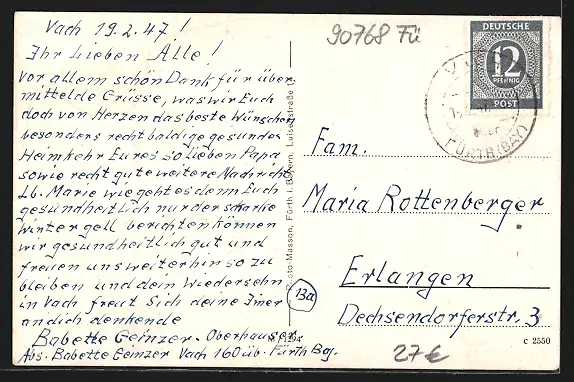 Vach 19.2.47!
Ihr Lieben Alle!
vor allem schön Dank für über
mittelde Grüsse, was wir Euch
doch von Herzen das beste Wünschen
besonders recht baldige gesundes
Heimkehr Eures so lieben Papa
sowie recht gute weitere Nachricht
Lb. Marie wie geht es denn Euch
gesundheitlich nur der starke
Winter gell berichten können
wir gesundheitlich gut und
freuen uns weiterhin so zu
bleiben und dein Wiedersehn
in Vach freut sich deine Imer
an dich denkende
Babette Geinzer. Oberhauser
Abs. Babette Geinzer Vach 160 üb. Fürth Bay.
Photo-Masson, Fürth i. Bayern, Luisenstraße
13a
90768 Fü
DEUTSCHE
12
PFENNIG
POST
FÜRTH (BAY)
Fam.
Maria Rottenberger
Erlangen
Dechsendorferstr. 3
27 €
c 2550